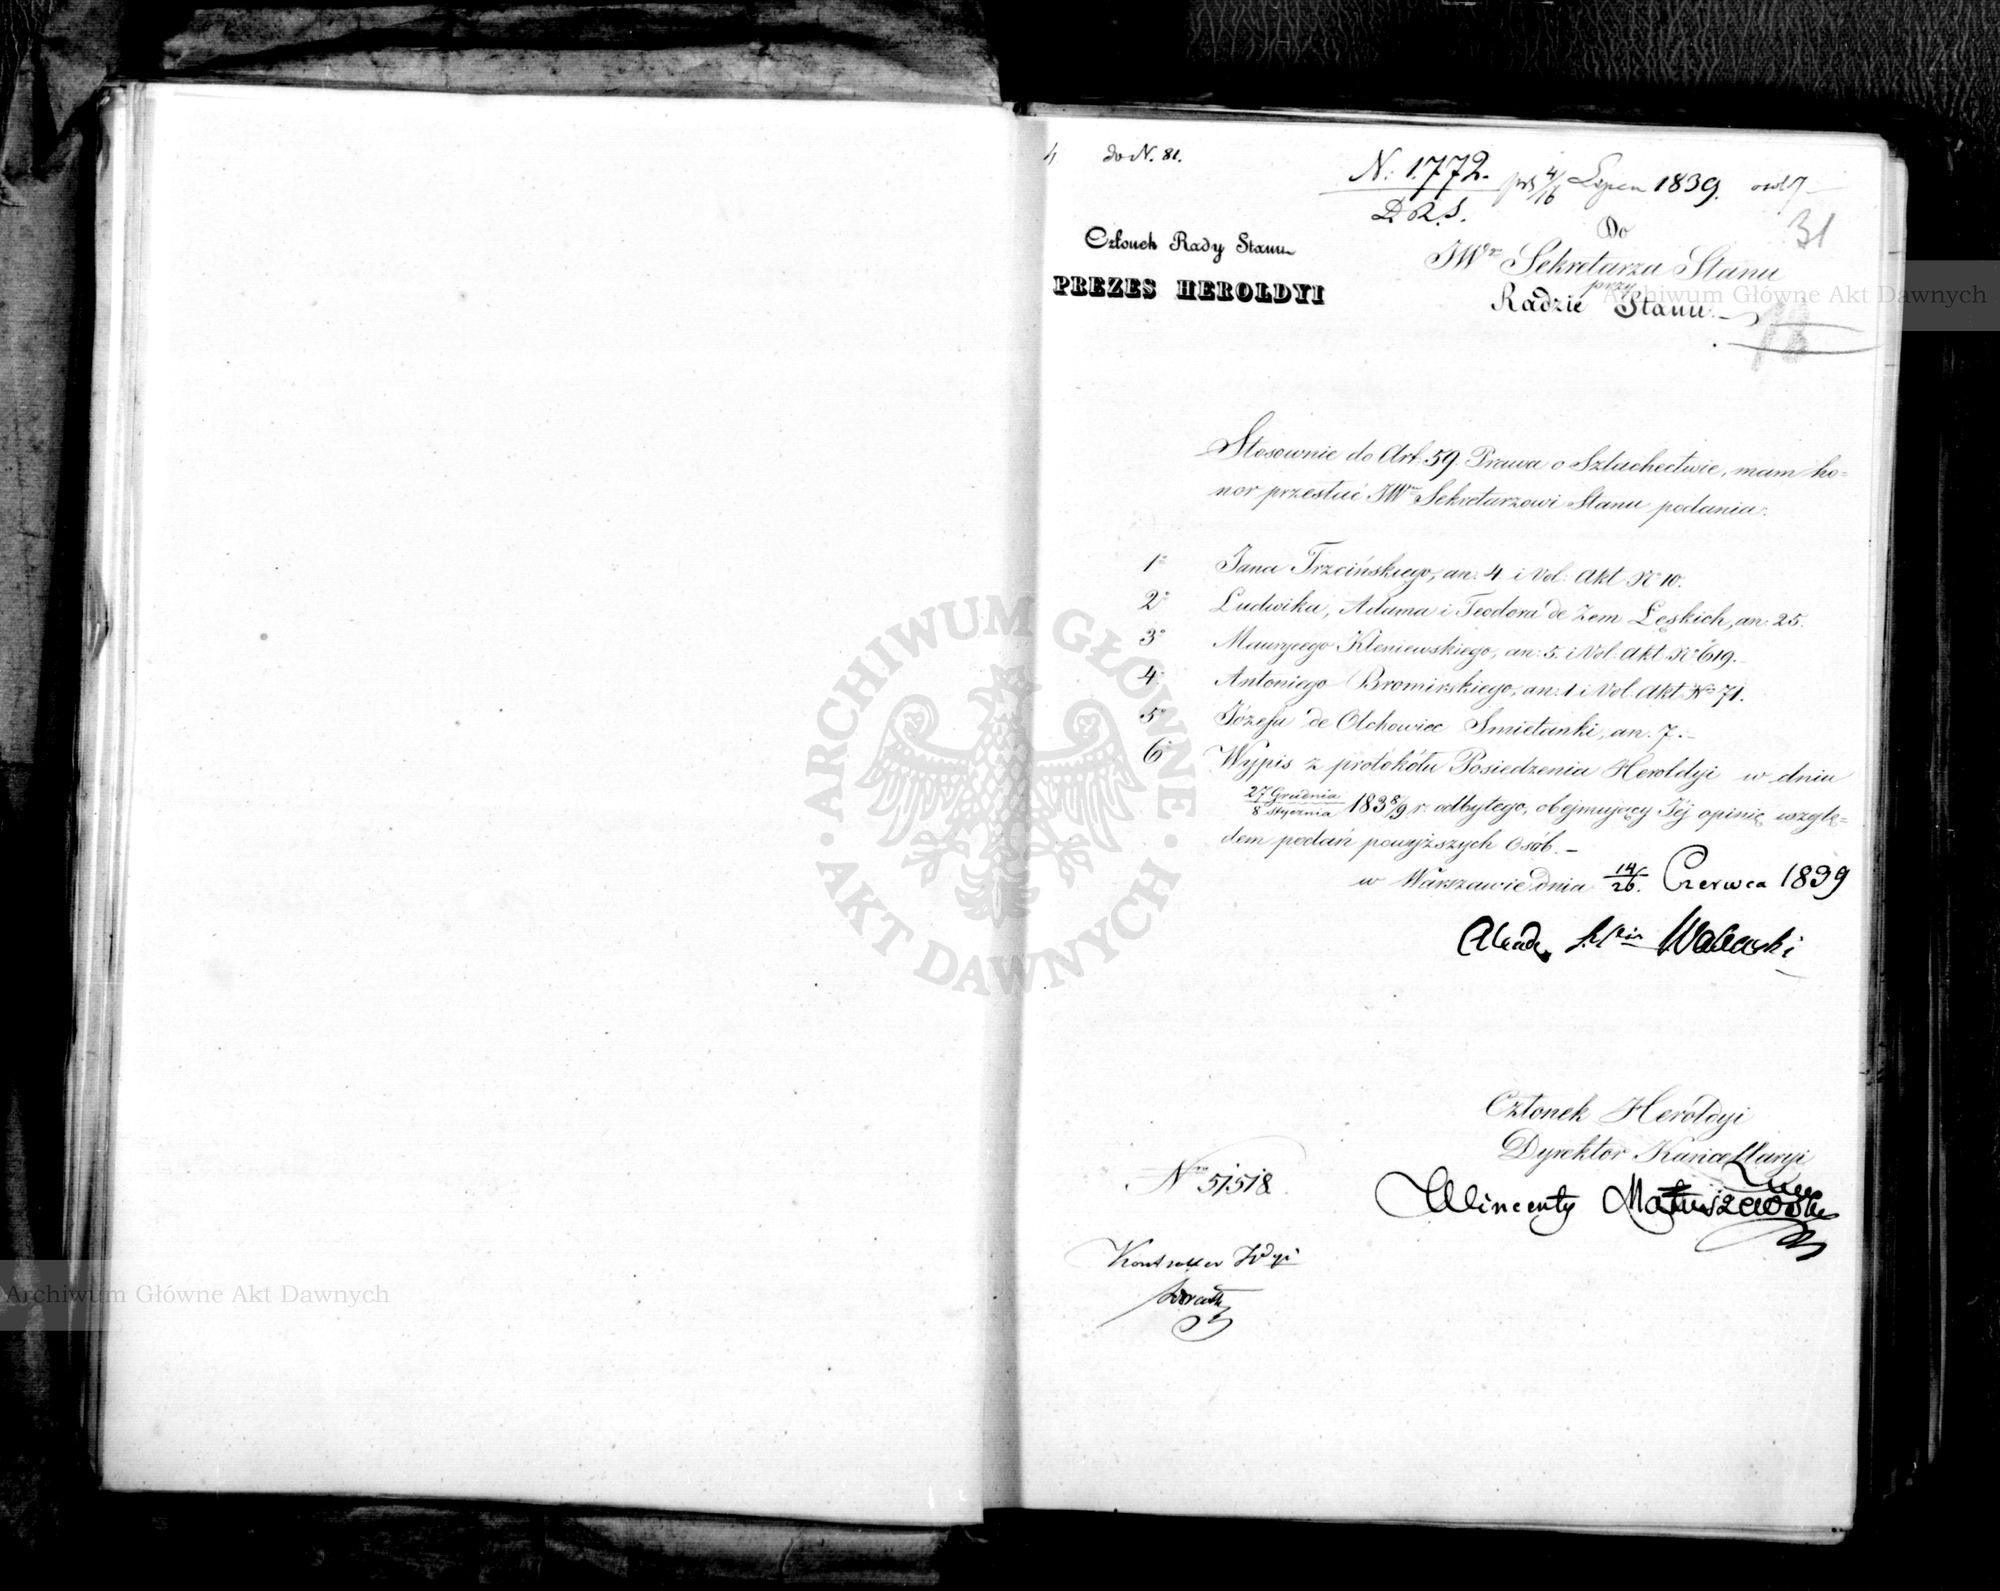 do N. 81.
N. 1772.
D.R.S.
4/16 Lipca 1839.
31
Członek Rady Stanu
PREZES HEROLDYI
Do
JWgo Sekretarza Stanu
przy
Radzie Stanu.
Stosownie do Art. 59. Prawa o Szlachectwie, mam ho=
nor przesłać JWmu Sekretarzowi Stanu podania:
1o Jana Trzcińskiego, an: 4. i Vol: Akt No 10.
2o Ludwika, Adama i Teodora de Zem Łęskich, an: 25.
3o Maurycego Kleniewskiego, an: 5. i Vol. Akt No 619.
4o Antoniego Bromirskiego, an: 1 i Vol. Akt No 71.
5o Józefa de Olchowiec Smietanki, an. 7.
6o Wypis z protokółu Posiedzenia Heroldyi w dniu
27 Grudnia/8 Stycznia 1838/9 r. odbytego, obejmujący Jéj opinię wzglę=
dem podań powyższych Osób.
w Warszawie dnia 14/26. Czerwca 1839
Walewski
Członek Heroldyi
Dyrektor Kancellaryi
Wincenty Matuszewski
Nro 51518
Kontroller
ARCHIWUM GŁÓWNE
AKT DAWNYCH
Archiwum Główne Akt Dawnych
Archiwum Główne Akt Dawnych